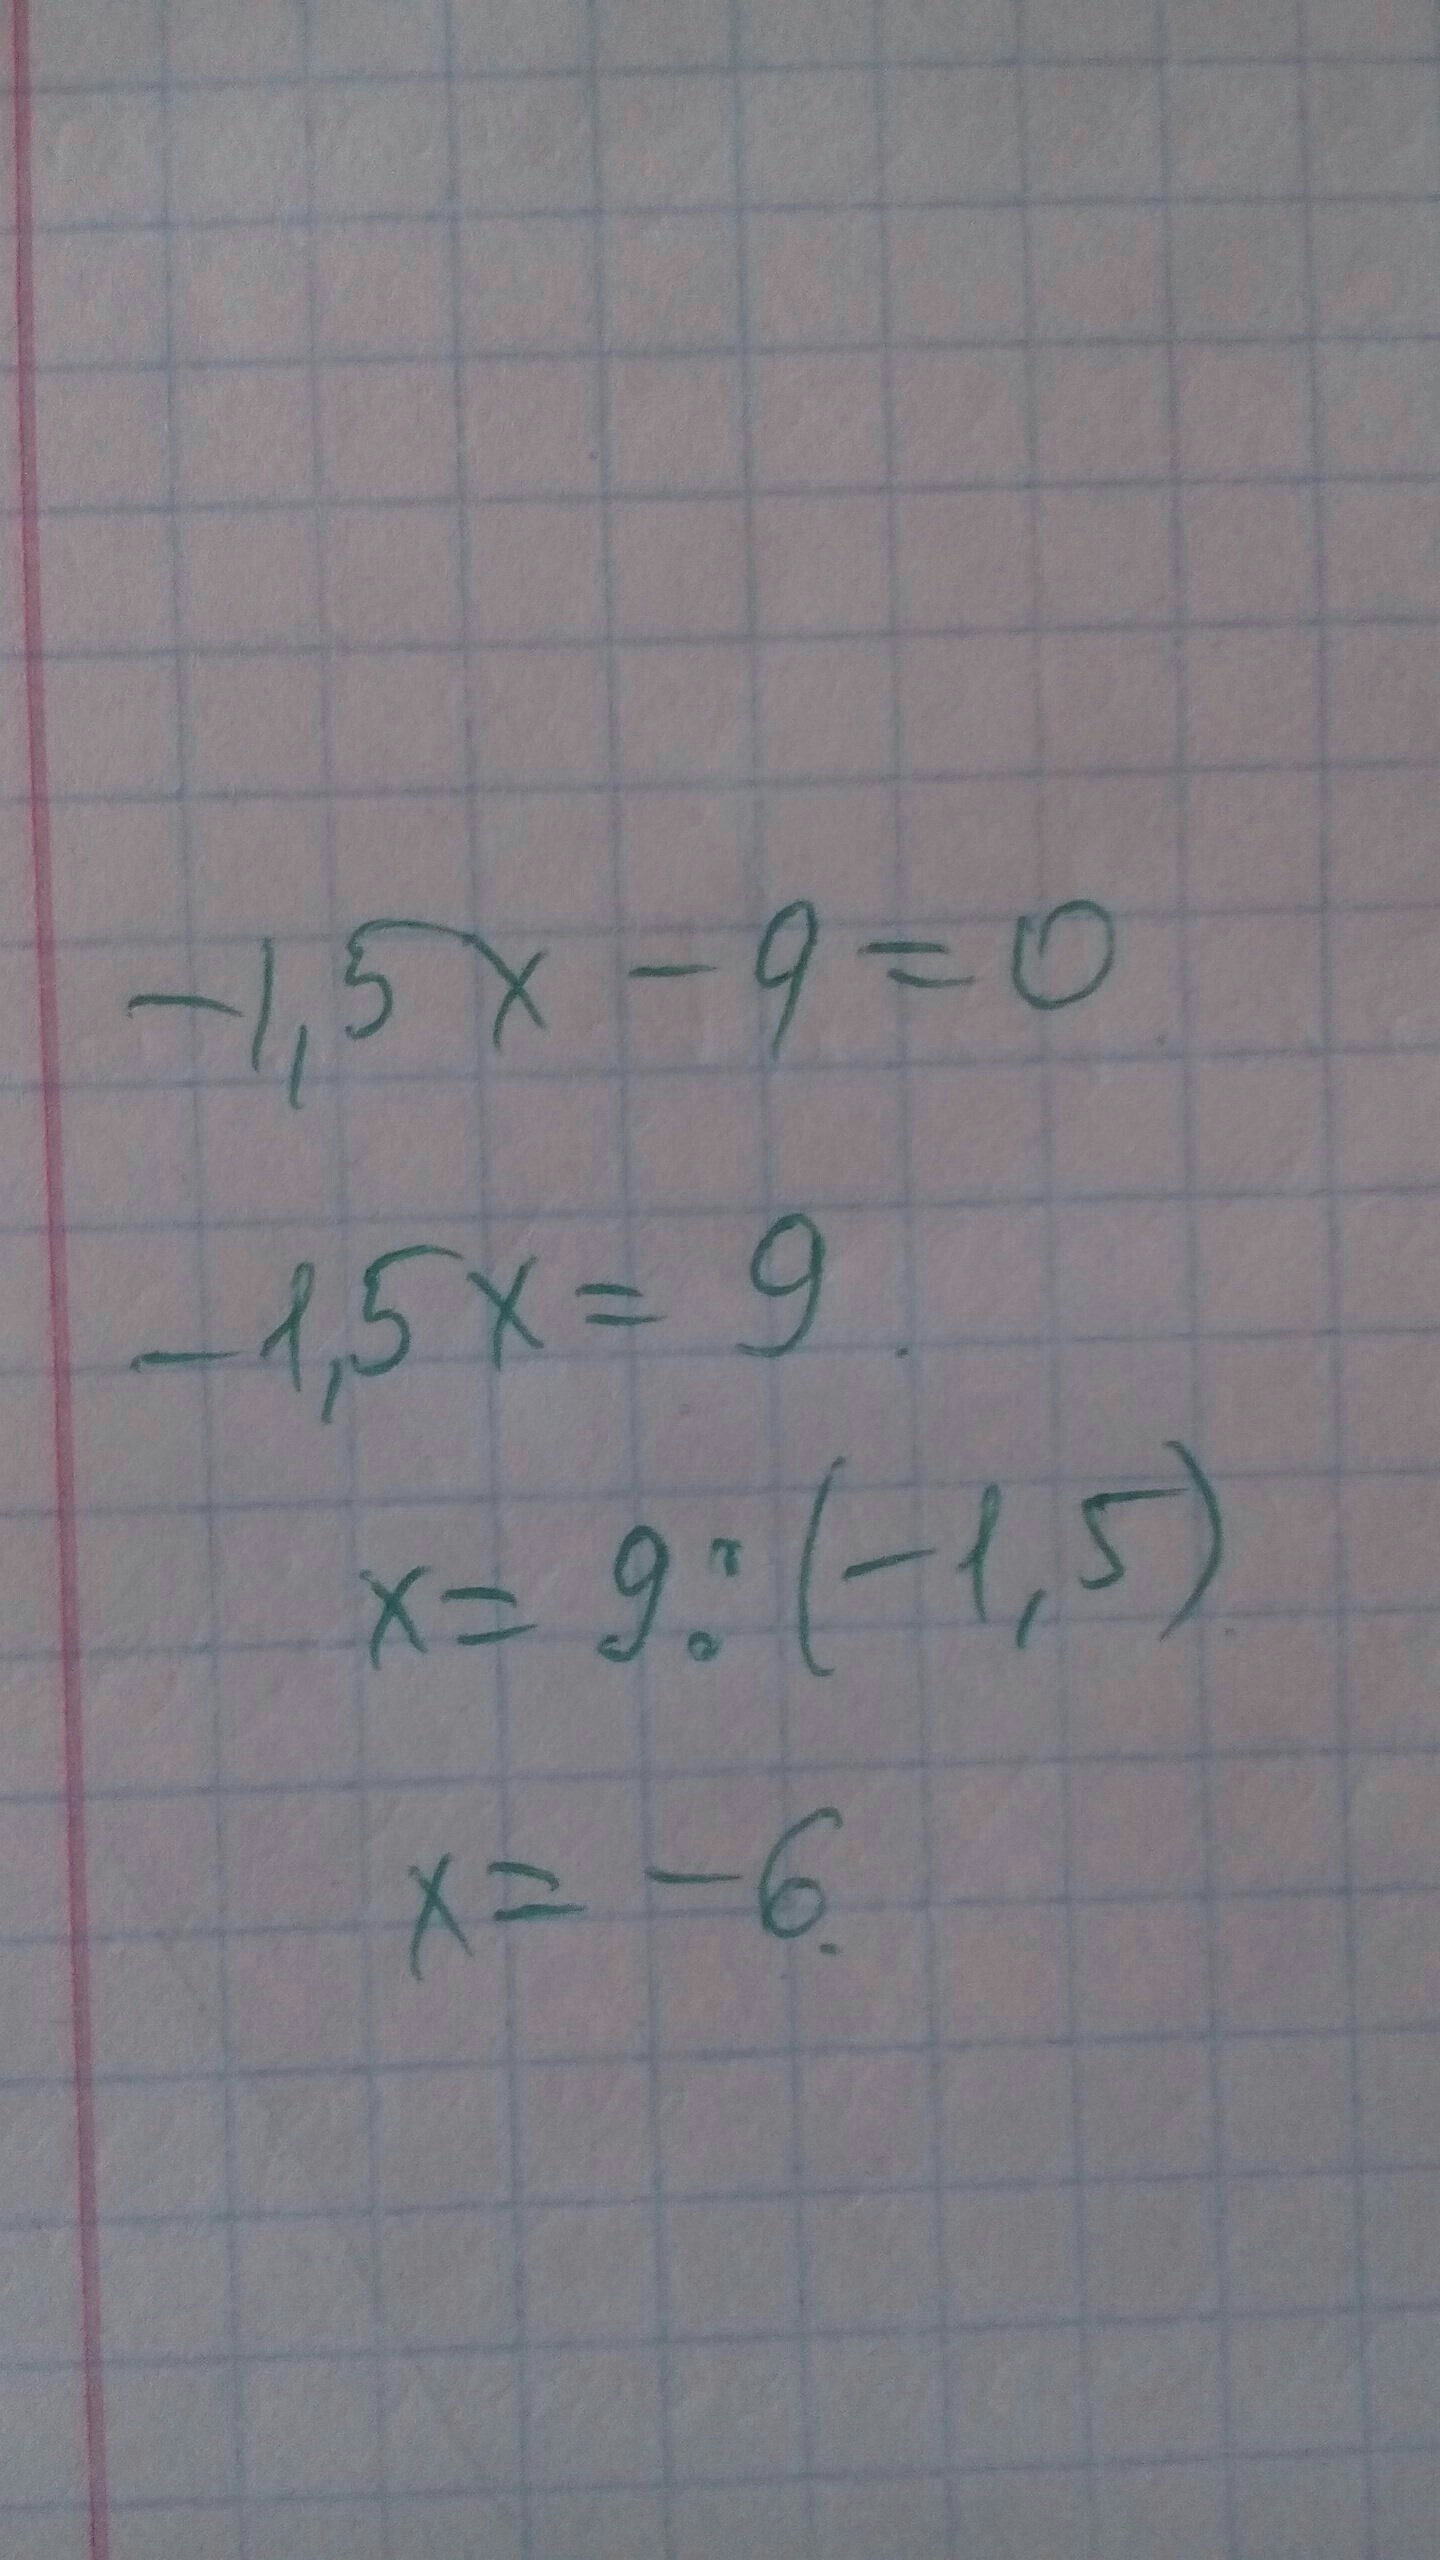 -1,5x - 9 = 0
-1,5x = 9.
x = 9:(-1,5)
x = -6.